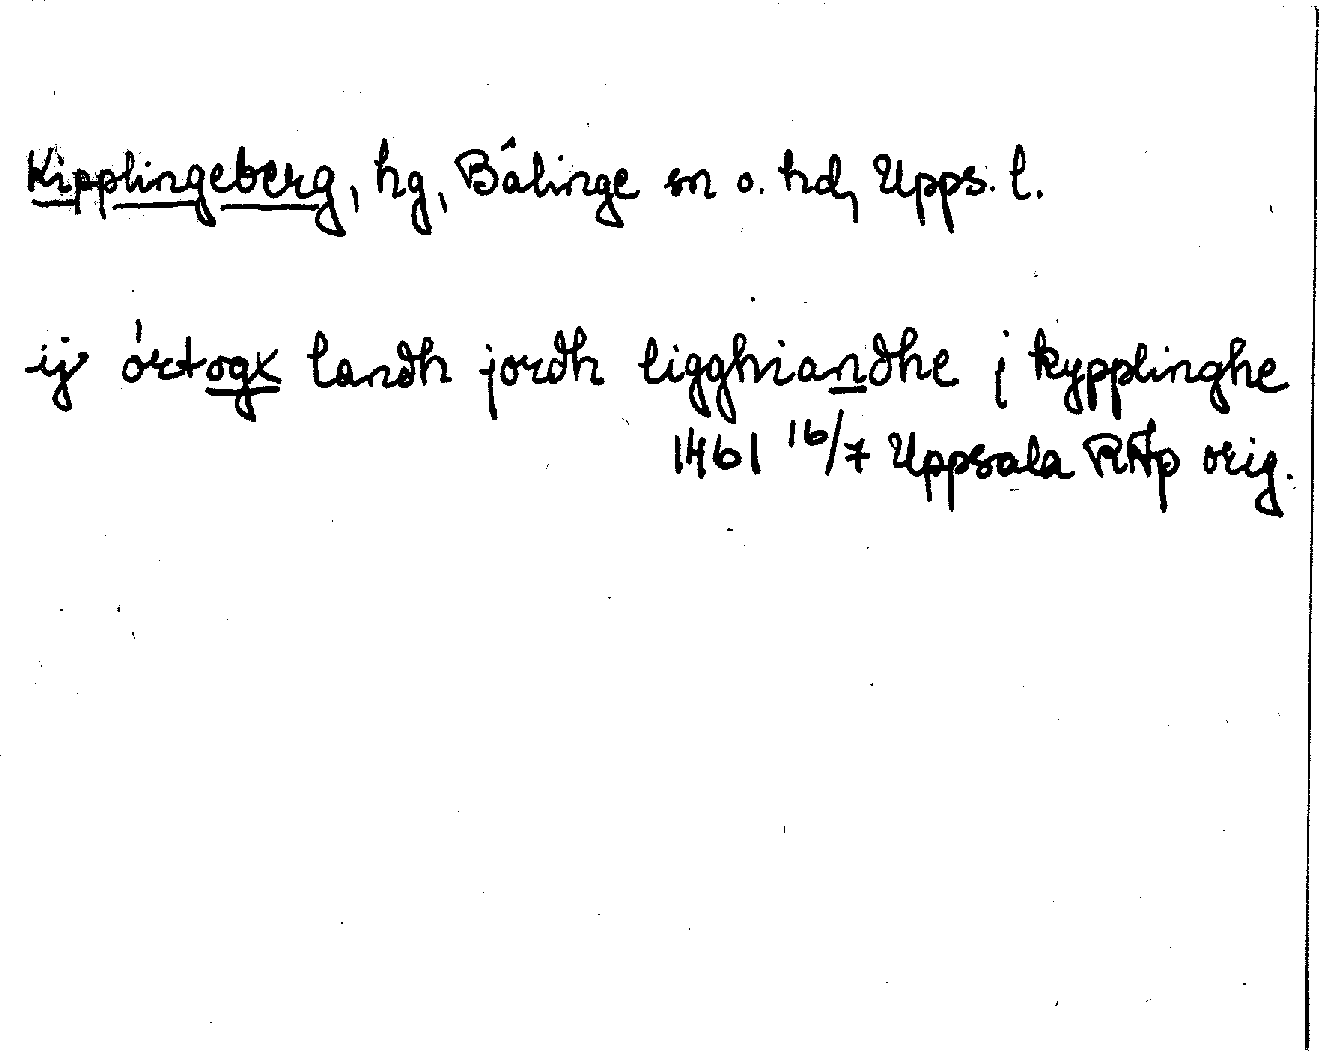 Kipplingeberg, hg, Bälinge sn o. hd, Upps. l.
ij órtogx landh jordh ligghiandhe j kypplinghe
1461 16/7 Uppsala RAp orig.